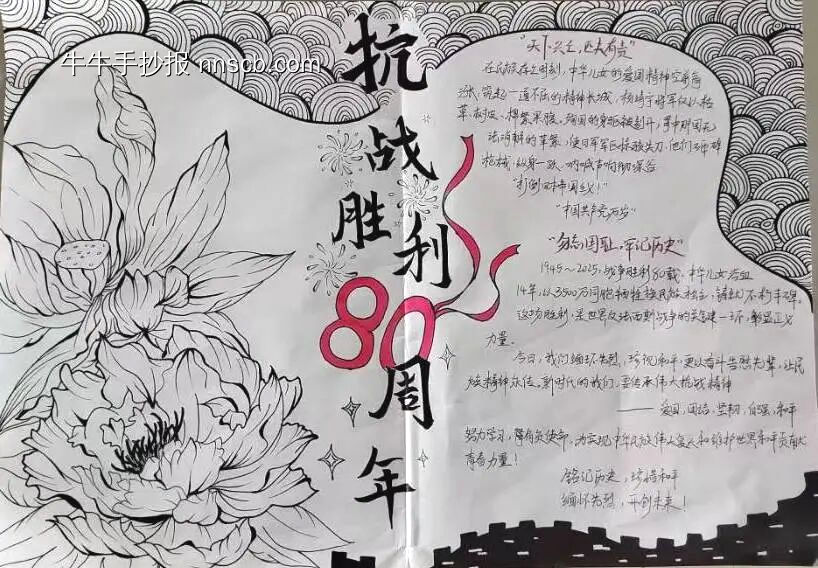 牛牛手抄报 nnscb.com
抗战胜利
80周年
"天下兴亡,匹夫有责"
在民族存亡时刻,中华儿女的爱国精神空前高
涨,筑起一道不屈的精神长城,杨靖宇将军仅以枯
草、棉絮果腹。
"打倒日本帝国主义!"
"中国共产党万岁"
"勿忘国耻,牢记历史"
1945~2025,战争胜利80载,中华儿女浴血
14年,以3500万同胞牺牲换民族独立,铸就不朽丰碑。
这场胜利,是世界反法西斯战争的关键一环,彰显正义
力量。
今日,我们缅怀先烈,珍视和平,更以奋斗告慰先辈,让民
族精神永传。新时代的我们,要传承伟大抗战精神
——爱国、团结、坚韧、自强、和平
努力学习,肩负使命,为实现中华民族伟大复兴和维护世界和平贡献
青春力量!
铭记历史,珍惜和平
缅怀先烈,开创未来!